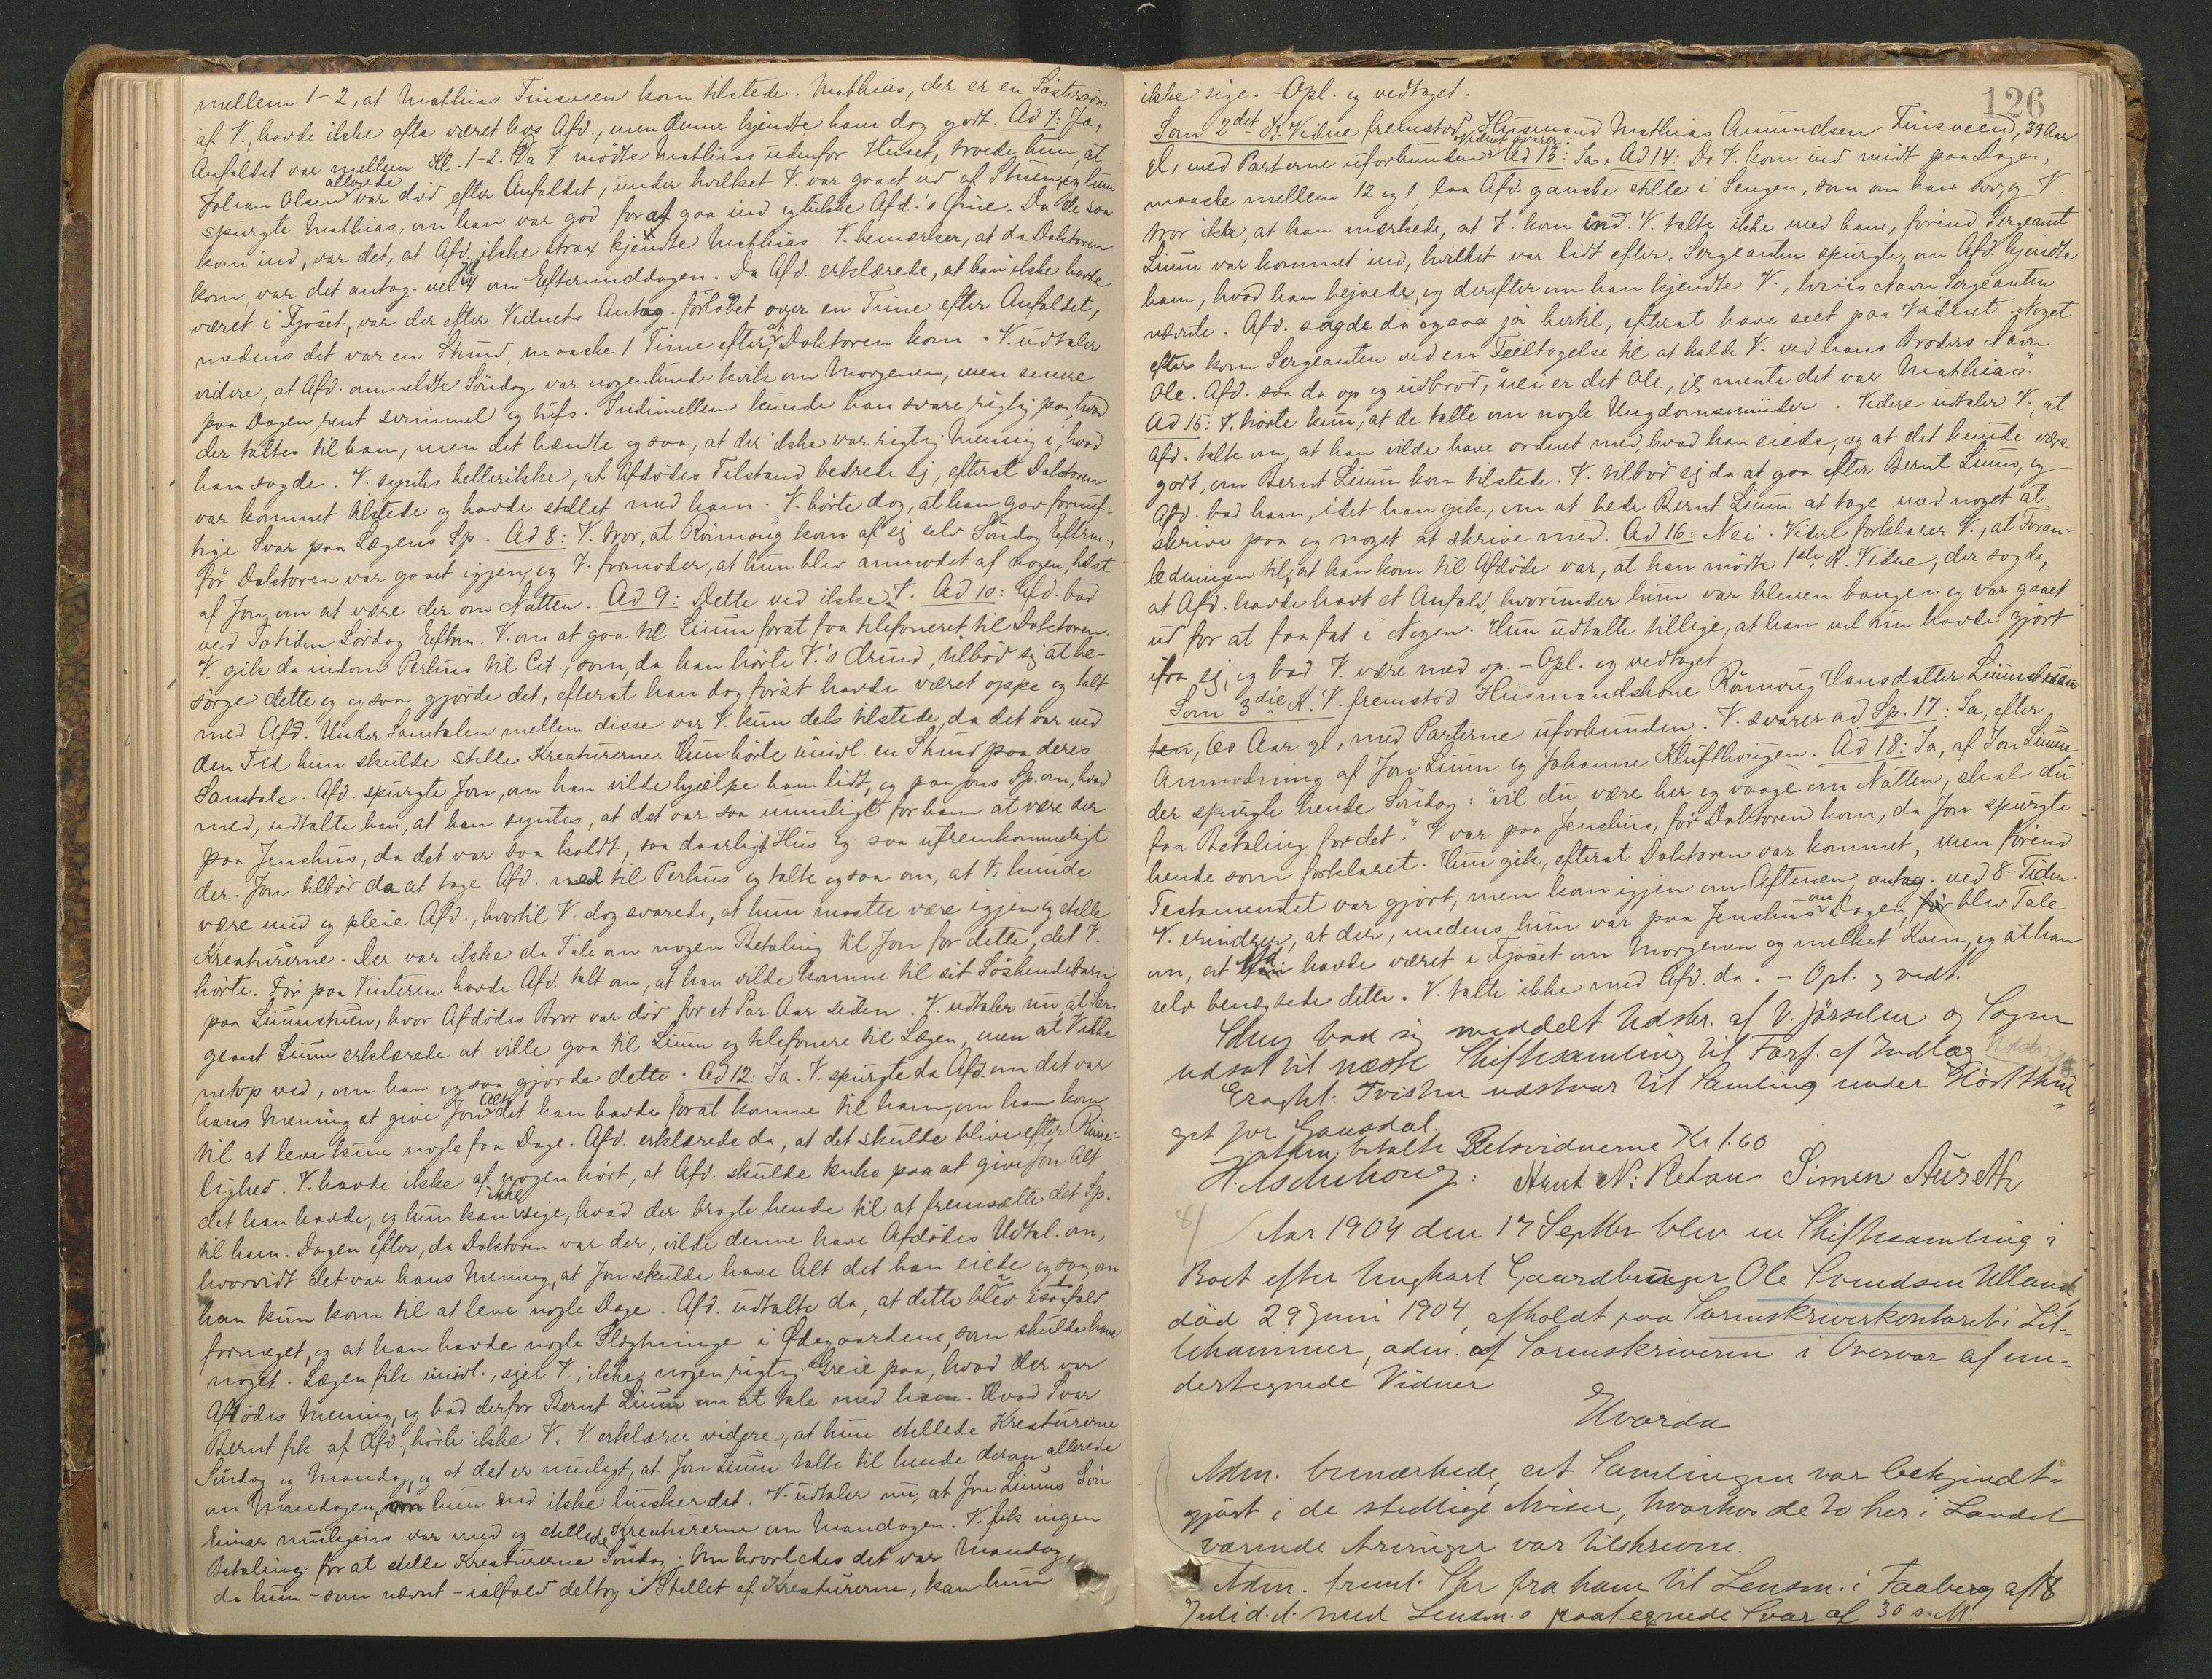 mellem 1-2, at Mathias Finsveen kom tilstede. Mathias, der er en Søstersøn
af V., havde ikke ofte været hos Afd., men denne kjendte ham dog godt. Ad 7: Ja,
Anfaldet var mellem Kl. 1-2. Da V. mødte Mathias udenfor Huset, troede hun, at
Johan Olsen allerede var død efter Anfaldet, under hvilket V. var gaaet ud af Stuen, og hun
spurgte Mathias, om han var god for at gaa ind og lukke Afd.'s Øine. Da de saa
kom ind, var det, at Afd. ikke strax kjendte Mathias. V. bemærker, at da Doktoren
kom, var det antag. vel Kl. 4 om Eftermiddagen. Da Afd. erklærede, at han ikke havde
været i Fjøset, var der efter Vidnets Antag. forløbet over en Time efter Anfaldet,
medens det var en Stund, maaske 1 Time efter, at Doktoren kom. V. udtaler
videre, at Afd. anmeldte Søndag var nogenlunde kvik om Morgenen, men senere
paa Dagen rent svimmel og tufs. Indimellem kunde han svare rigtig paa hvad
der taltes til ham, men det hændte ogsaa, at der ikke var rigtig Mening i, hvad
han sagde. V. syntes hellerikke, at Afdødes Tilstand bedrede sig, efterat Doktoren
var kommet tilstede og havde stellet med ham. V. hørte dog, at han gav fornuf-
tige Svar paa Lægens Sp. Ad 8: V. tror, at Rønnoug kom af sig selv Søndag Efterm.,
før Doktoren var gaaet igjen, og V. formoder, at hun blev anmodet af nogen, helst
af Jon, om at være der om Natten. Ad 9: Dette ved ikke V. Ad 10: Afd. bad
ved Totiden Lørdag Efterm. V. om at gaa til Lium forat faa telefoneret til Doktoren.
V. gik da indom Perhus til Cit., som, da han hørte V.'s Ærend, tilbød sig at be-
sørge dette og ogsaa gjorde det, efterat han dog først havde været oppe og talt
med Afd. Under Samtalen mellem disse var V. kun dels tilstede, da det var ved
den Tid hun skulde stelle Kreaturerne. Hun hørte imidl. en Stund paa deres
Samtale. Afd. spurgte Jon, om han vilde hjælpe ham lidt, og paa Jons Sp. om, hvad
med, udtalte han, at han syntes, at det var saa umuligt for ham at være der
paa Jenshus, da det var saa koldt, saa daarligt Hus og saa ufremkommeligt
der. Jon tilbød da at tage Afd. ned til Perhus og talte ogsaa om, at V. kunde
være med og pleie Afd., hvortil V. dog svarede, at hun maatte være igjen og stelle
Kreaturerne. Der var ikke da Tale om nogen Betaling til Jon for dette, det V.
hørte. Før paa Vinteren havde Afd. talt om, at han vilde komme til sit Søskendebarn
paa Liumstuen, hvor Afdødes Bror var død for et Par Aar siden. V. udtaler nu, at Ser-
geant Lium erklærede at ville gaa til Lium og telefonere til Lægen, men at V. ikke
netop ved, om han ogsaa gjorde dette. Ad 12: Ja. V. spurgte da Afd. om det var
hans Mening at give Jon Alt det han havde forat komme til ham, om han kom
til at leve kun nogle faa Dage. Afd. erklærede da, at det skulde blive efter Rime-
lighed. V. havde ikke af nogen hørt, at Afd. skulde tænke paa at give Jon Alt
det han havde, og hun kan ikke sige, hvad der bragte hende til at fremsætte det Sp.
til ham. Dagen efter, da Doktoren var der, vilde denne have Afdødes Udtal. om,
hvorvidt det var hans Mening, at Jon skulde have Alt det han eiede ogsaa, om
han kun kom til at leve nogle Dage. Afd. udtalte da, at dette blev isaafald
formeget, og at han havde nogle Slægtninge i Ødegaardene, som skulde have
noget. Lægen fik imidl., siger V., ikke nogen rigtig Greie paa, hvad der var
Afdødes Mening, og bad derfor Bernt Lium om at tale med ham. Hvad Svar
Bernt fik af Afd., hørte ikke V. V. erklærer videre, at hun stellede Kreaturerne
Søndag og Mandag, og at det er muligt, at Jon Lium talte til hende derom allerede
om Mandagen, hun ved ikke husker det. V. udtaler nu, at Jon Liums Søn
Einar muligens var med og stellede Kreaturerne om Mandagen. V. fik ingen
Betaling for at stelle Kreaturerne Søndag. Om hvorledes det var Mandag,
da hun - som nævnt - ialfald deltog i Stellet af Kreaturerne, kan hun
126
ikke sige. - Opl. og vedtaget.
Som 2det K. Vidne fremstod Husmand Mathias Amundsen Finsveen, 39 Aar
gl, med Parterne uforbunden. Vidnet svarer: Ad 13: Ja. Ad 14: Da V. kom ind midt paa Dagen,
maaske mellem 12 og 1, laa Afd. ganske stille i Sengen, som om han sov, og V.
tror ikke, at han mærkede, at V. kom ind. V. talte ikke med ham, førend Sergeant
Lium var kommet ind, hvilket var lidt efter. Sergeanten spurgte, om Afd. kjendte
ham, hvad han bejaede, og derefter om han kjendte V., hvis Navn Sergeanten
nævnte. Afd. sagde da ogsaa ja hertil, efterat have seet paa Vidnet. Noget
efter kom Sergeanten ved en Feiltagelse til at kalde V. ved hans Broders Navn
Ole. Afd. saa da op og udbrød, "nei er det Ole, jeg mente det var Mathias".
Ad 15: V. hørte kun, at de talte om nogle Ungdomsminder. Videre udtaler V., at
Afd. talte om, at han vilde have ordnet med, hvad han eiede, og at det kunde være
godt, om Bernt Lium kom tilstede. V. tilbød sig da at gaa efter Bernt Lium, og
Afd. bad ham, idet han gik, om at bede Bernt Lium at tage med noget at
skrive paa og noget at skrive med. Ad 16: Nei. Videre forklarer V., at Foran-
ledningen til, at han kom til Afdøde var, at han mødte 1ste K. Vidne, der sagde,
at Afd. havde havt et Anfald, hvorunder hun var bleven bange og var gaaet
ud for at faa fat i Nogen. Hun udtalte tillige, at han vel nu havde gjort
ifra sig, og bad V. være med op. - Opl. og vedtaget.
Som 3die K. V. fremstod Husmandskone Rønnoug Hansdatter Liumstuen
60 Aar gl, med Parterne uforbunden. V. svarer ad Sp. 17: Ja, efter
Anmodning af Jon Lium og Johanne Klufthougen. Ad 18: Ja, af Jon Lium,
der spurgte hende Søndag: "vil du være her og vaage om Natten, skal du
faa Betaling for det." V. var paa Jenshus, før Doktoren kom, da Jon spurgte
hende som forklaret. Hun gik, efterat Doktoren var kommet, men førend
Testamentet var gjort, men kom igjen om Aftenen, antag. ved 8-Tiden.
V. erindrer, at der, medens hun var paa Jenshus om Dagen, blev Tale
om, at Afd. havde været i Fjøset om Morgenen og melket Koen, og at han
selv benægtede dette. V. talte ikke med Afd. da. - Opl. og vedt.
bad sig meddelt Udskr. af V. førselen og Sagen
udsat til næste Skiftesamling til Forf. af Indlæg
Eragt: Tvisten udstaar til Samling under Høstthin-
get for Gausdal.
Adm. betalte Retsvidnerne Kr 1.60
H. Aschehoug: Arnt N: Simen
8/
Aar 1904 den 17 Septbr blev en Skiftesamling i
Boet efter Ungkarl Gaardbruger Ole Svendsen Ulland
død 29 Juni 1904, afholdt paa Sorenskriverkontoret i Lil-
lehammer, adm. af Sorenskriveren i Overvær af un-
dertegnede Vidner
Hvorda
Adm. bemærkede, at Samlingen var bekjendt-
gjort i de stedlige Aviser, hvorhos de to her i Landet
værende Arvinger var tilskrevne.
Adm. freml. Skr fra ham til Lensm. i Faaberg af 18
Juli d.A. med Lensm.s paategnede Svar af 30 s. M.